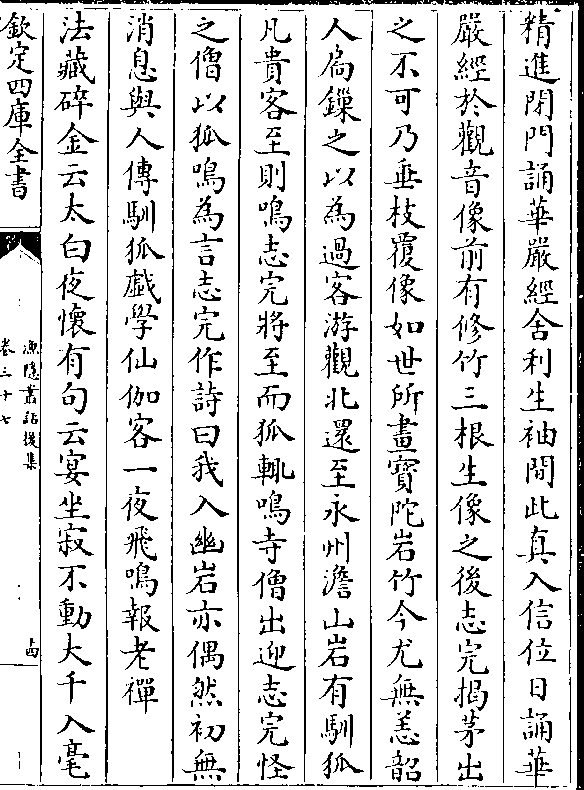 精進閉門誦華嚴經舍利生袖間此真入信位日誦華
嚴經於觀音像前有修竹三根生像之後志完揭茅出
之不可乃垂枝覆像如世所畫寳陀岩竹今尤無恙韶
人扄鏁之以為過客游觀北還至永州澹山岩有馴狐
凡貴客至則鳴志完將至而狐輒鳴寺僧出迎志完怪
之僧以狐鳴為言志完作詩曰我入幽岩亦偶然初無
消息與人傳馴狐戯學仙伽客一夜飛鳴報老禪
法藏碎金云太白夜懷有句云宴坐寂不動大千入毫
欽定四庫全書
漁隱叢話後集
卷三十七
十四